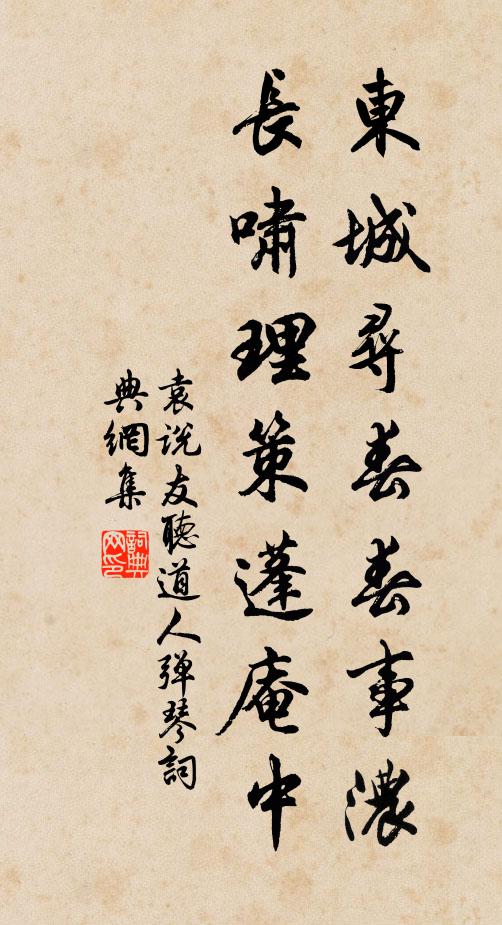 東城尋春春事濃
長嘯理策蓬庵中
袁說友聽道人彈琴詞
典網集
詞典
网印